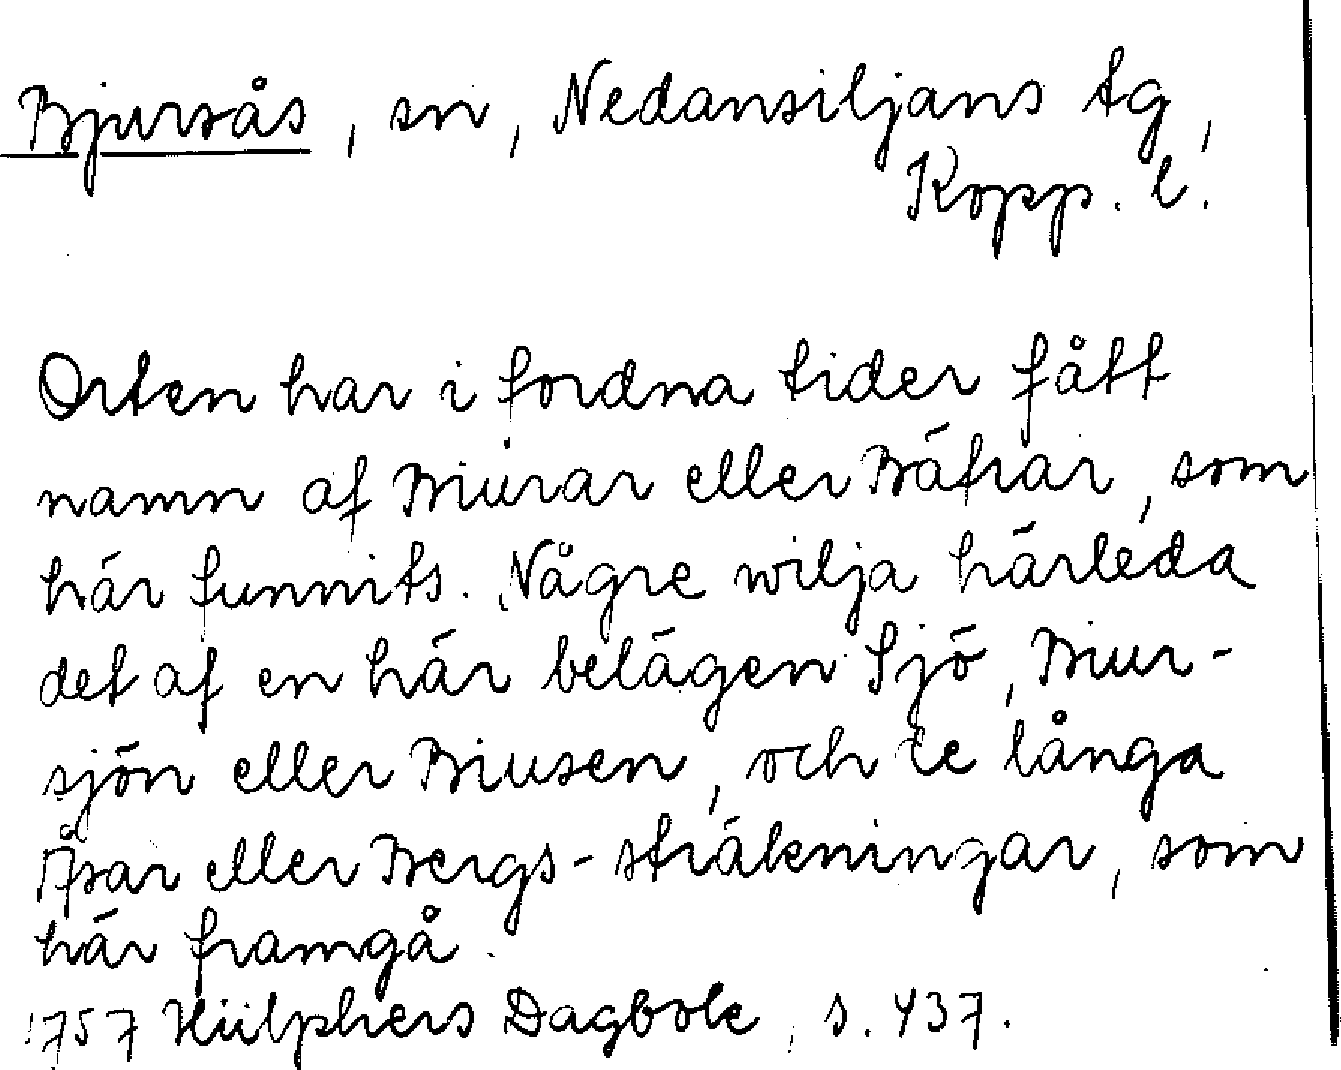 Bjursås, sn, Nedansiljans tg,
Kopp. l.
Orten har i fordna tider fått
namn af Biurar eller Bäfrar, som
här funnits. Någre wilja härleda
det af en här belägen Sjö, Biur-
sjön eller Biusen, och de långa
Åsar eller Bergs-sträkningar, som
här framgå.
1757 Hülphers Dagbok, s. 437.